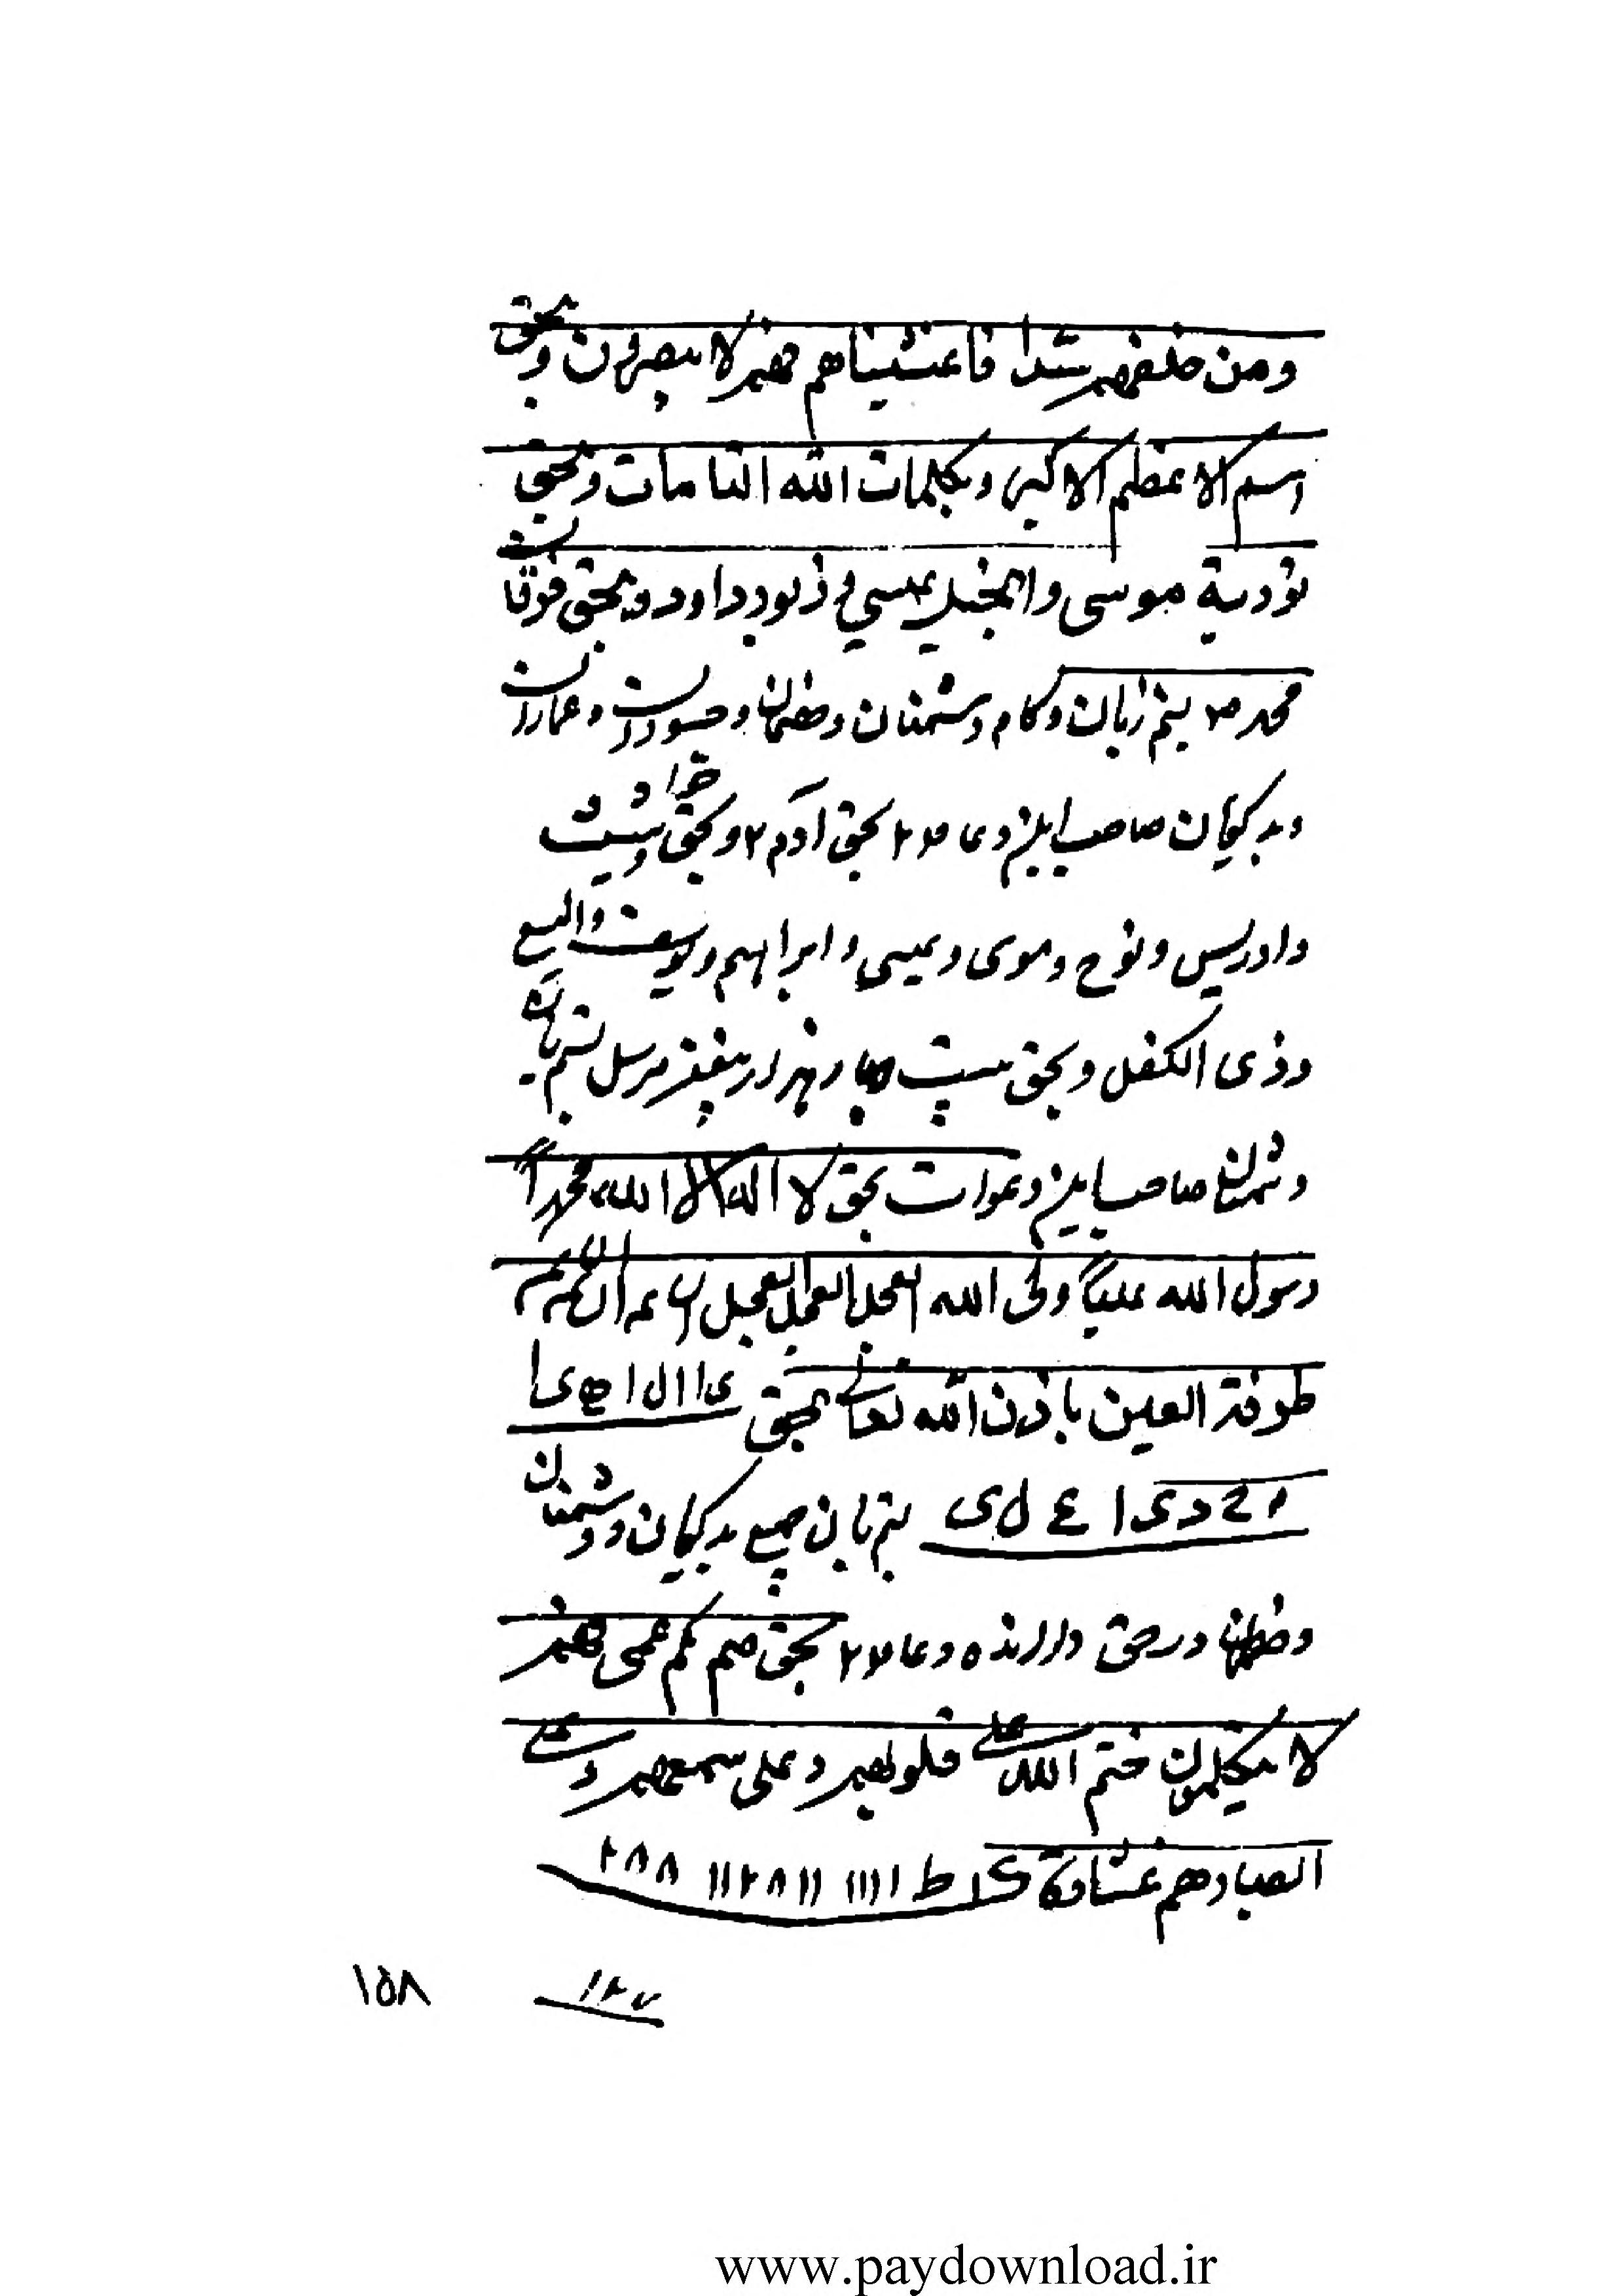 ومن خلفهم سدا فاغشیناهم فهم لا یبصرون و بحق
اسم الاعظم الاکبر و بکلمات الله التامات و بحق
توریة موسی و انجیل عیسی و زبور داود و بحق فرقان
محمد ص بستم زبان و کام دشمنان و خصمان و حسودان و غمازان
و بدگویان صاحب این دعا ۲۴ بحق آدم ۲ و بحق حوا و شیث
و ادریس و نوح و موسی و عیسی و ابراهیم و یوسف و الیسع
و ذی الکفل و بحق بیست چهار هزار پیغمبر مرسل بستم زبان
دشمنان صاحب این دعوات بحق لا اله الا الله محمداً
رسول الله علیاً ولی الله العجل العجل العجل الساعه
طرفة العین باذن الله تعالی بحق ی ا ا ل ا ه ی ا
د ی ا ع ل ی بزبان جمیع بدگویان و دشمنان
و خصمان در حق دارنده دعا ۲۴ بحق صم بکم عمی فهم
لا یتکلمون ختم الله علی قلوبهم و علی سمعهم و علی
ابصارهم غشاوة ط ۱۱۱۱ ۱۱۲۸۱۱ ۲۸۸
۱۲۷
۱۵۸
www.paydownload.ir